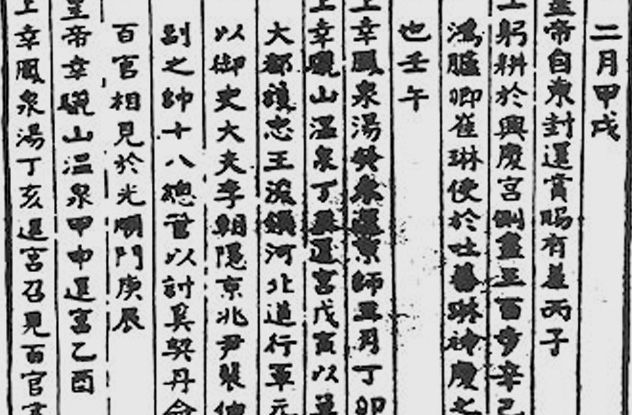 二月甲戌
皇帝自東封還賞賜有差丙子
上躬耕於興慶宮側盡三百步辛巳
鴻臚卿崔琳使於吐蕃琳神慶之
也壬午
上幸鳳泉湯還京師月丁卯
上幸驪山溫泉丁還宮戊寅以單
大都護忠王浚領河北道行軍元
以御史大夫李朝隱京兆尹裴伷
副之帥十八總管以討奚契丹命
百官相見於光順門庚辰
皇帝幸驪山溫泉甲申還宮乙酉
上幸鳳泉湯丁亥還宮召見百官